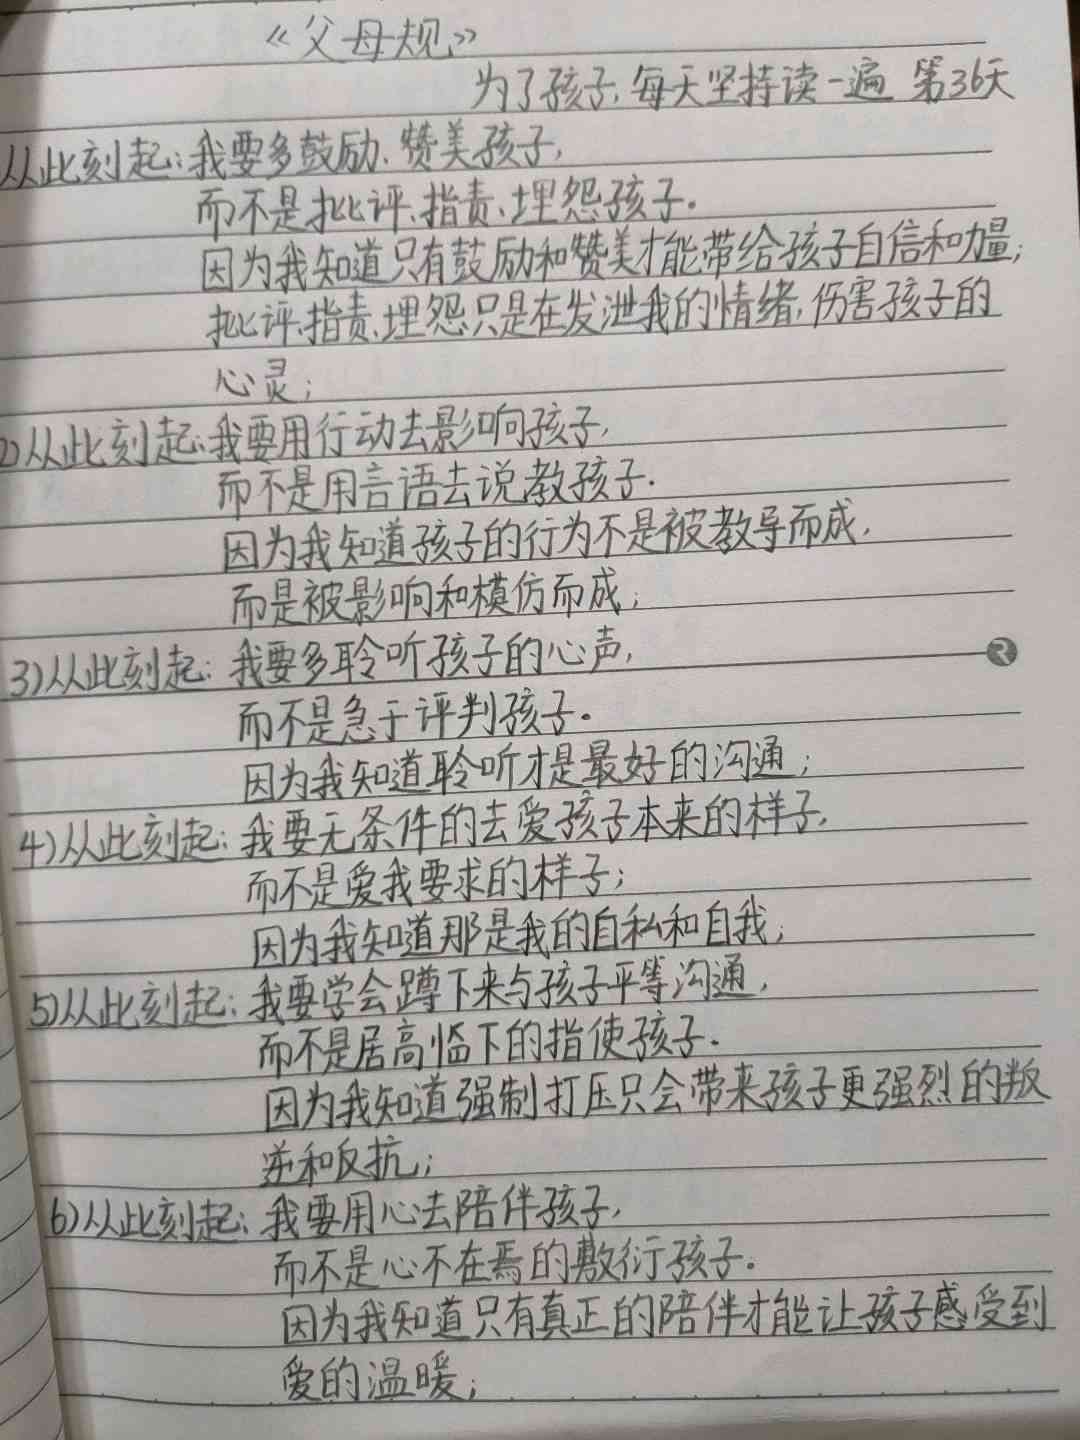 《父母规》
为了孩子,每天坚持读一遍 第36天
从此刻起:我要多鼓励、赞美孩子,
而不是批评、指责、埋怨孩子.
因为我知道只有鼓励和赞美才能带给孩子自信和力量;
批评、指责、埋怨只是在发泄我的情绪,伤害孩子的
心灵;
2)从此刻起:我要用行动去影响孩子,
而不是用言语去说教孩子.
因为我知道孩子的行为不是被教导而成,
而是被影响和模仿而成;
3)从此刻起:我要多聆听孩子的心声,
而不是急于评判孩子.
因为我知道聆听才是最好的沟通;
4)从此刻起:我要无条件的去爱孩子本来的样子,
而不是爱我要求的样子;
因为我知道那是我的自私和自我;
5)从此刻起:我要学会蹲下来与孩子平等沟通,
而不是居高临下的指使孩子.
因为我知道强制打压只会带来孩子更强烈的叛
逆和反抗;
6)从此刻起:我要用心去陪伴孩子,
而不是心不在焉的敷衍孩子.
因为我知道只有真正的陪伴才能让孩子感受到
爱的温暖;